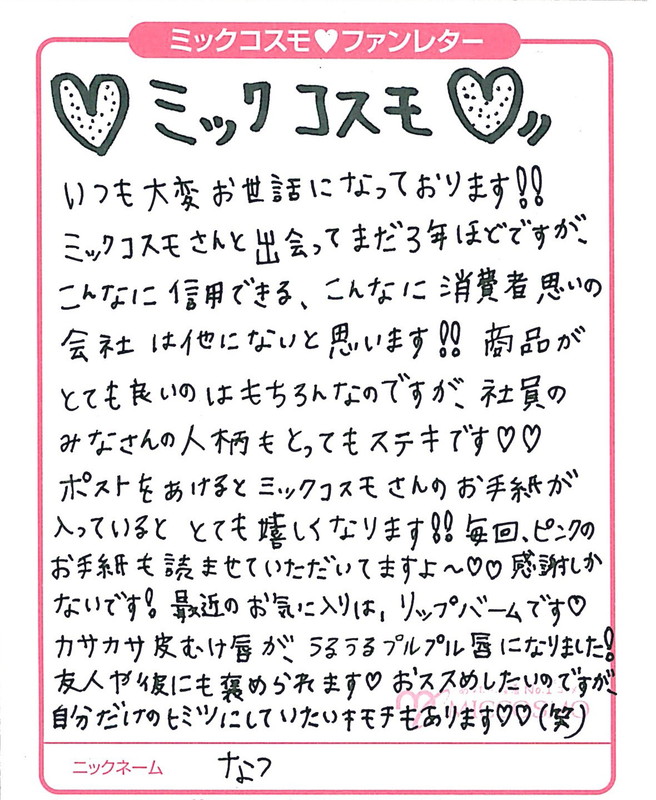 ミックコスモ♥ファンレター
♡ミックコスモ♡
いつも大変お世話になっております!!
ミックコスモさんと出会ってまだ3年ほどですが、
こんなに信用できる、こんなに消費者思いの
会社は他にないと思います!! 商品が
とても良いのはもちろんなのですが、社員の
みなさんの人柄もとってもステキです♡♡
ポストをあけるとミックコスモさんのお手紙が
入っていると とても嬉しくなります!! 毎回、ピンクの
お手紙も読ませていただいてますよ〜♡♡ 感謝しか
ないです! 最近のお気に入りは、リップバームです♡
カサカサ皮むけ唇が、うるうるプルプル唇になりました!
友人や彼にも褒められます♡ おススメしたいのですが、
自分だけのヒミツにしていたいキモチもあります♡♡(笑)
MICCOSMO
ニックネーム なつ